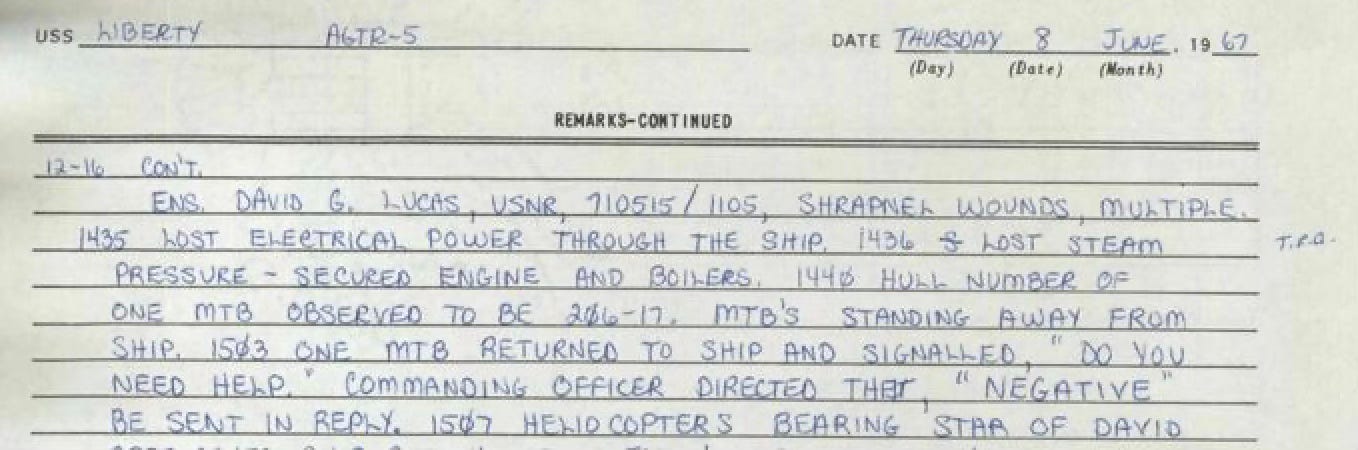 USS LIBERTY AGTR-5 DATE THURSDAY 8 JUNE, 19 67
(Day) (Date) (Month)
REMARKS-CONTINUED
12-16 CON'T.
ENS. DAVID G. LUCAS, USNR, 710515/1105, SHRAPNEL WOUNDS, MULTIPLE.
1435 LOST ELECTRICAL POWER THROUGH THE SHIP. 1436 LOST STEAM
PRESSURE - SECURED ENGINE AND BOILERS. 144Ø HULL NUMBER OF
ONE MTB OBSERVED TO BE 2Ø6-17. MTB'S STANDING AWAY FROM
SHIP. 15Ø3 ONE MTB RETURNED TO SHIP AND SIGNALLED, "DO YOU
NEED HELP." COMMANDING OFFICER DIRECTED THAT, "NEGATIVE"
BE SENT IN REPLY. 15Ø7 HELIOCOPTERS BEARING STAR OF DAVID